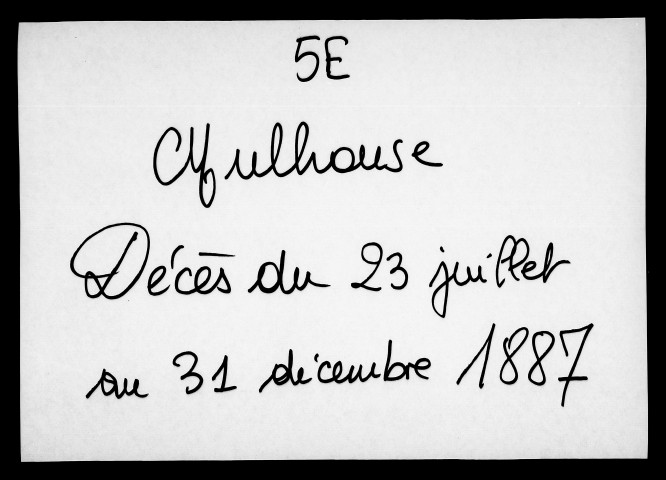 5E
Mulhouse
Décès du 23 juillet
au 31 décembre 1887